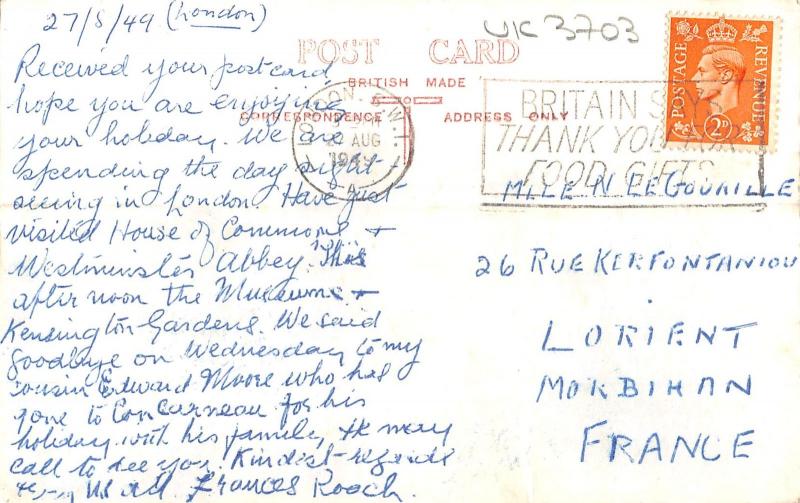 27/8/49 (London)
UK 3703
POST CARD
BRITISH MADE
CORRESPONDENCE ADDRESS ONLY
POSTAGE REVENUE
2D
LONDON. S.W.1.
27 AUG
BRITAIN SAYS
THANK YOU FOR
FOOD GIFTS
Received your postcard,
hope you are enjoying
your holiday. We are
spending the day sight
seeing in London. Have just
visited House of Commons +
Westminster Abbey. This
afternoon the Museums +
Kensington Gardens. We said
goodbye on Wednesday to my
cousin Edward Moore who has
gone to Concarneau for his
holiday with his family, He may
call to see you. Kindest regards
from us all Frances Roach.
MLLE N LE GOURILLE
26 RUE KERFONTANIOU
LORIENT
MORBIHAN
FRANCE